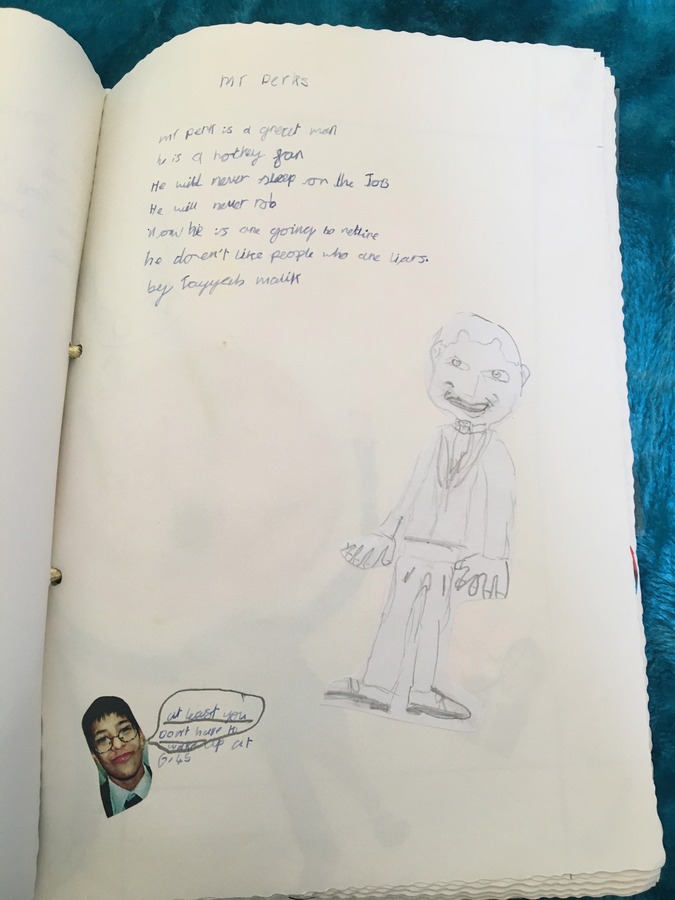 Mr Perks
mr perk is a great man
he is a hotkey fan
He will never sleep on the JOB
He will never rob
Now he is are going to retire
he doren't like people who are liars.
by Tayyeb malik
at least you
Dont have to
wake up at
6:45